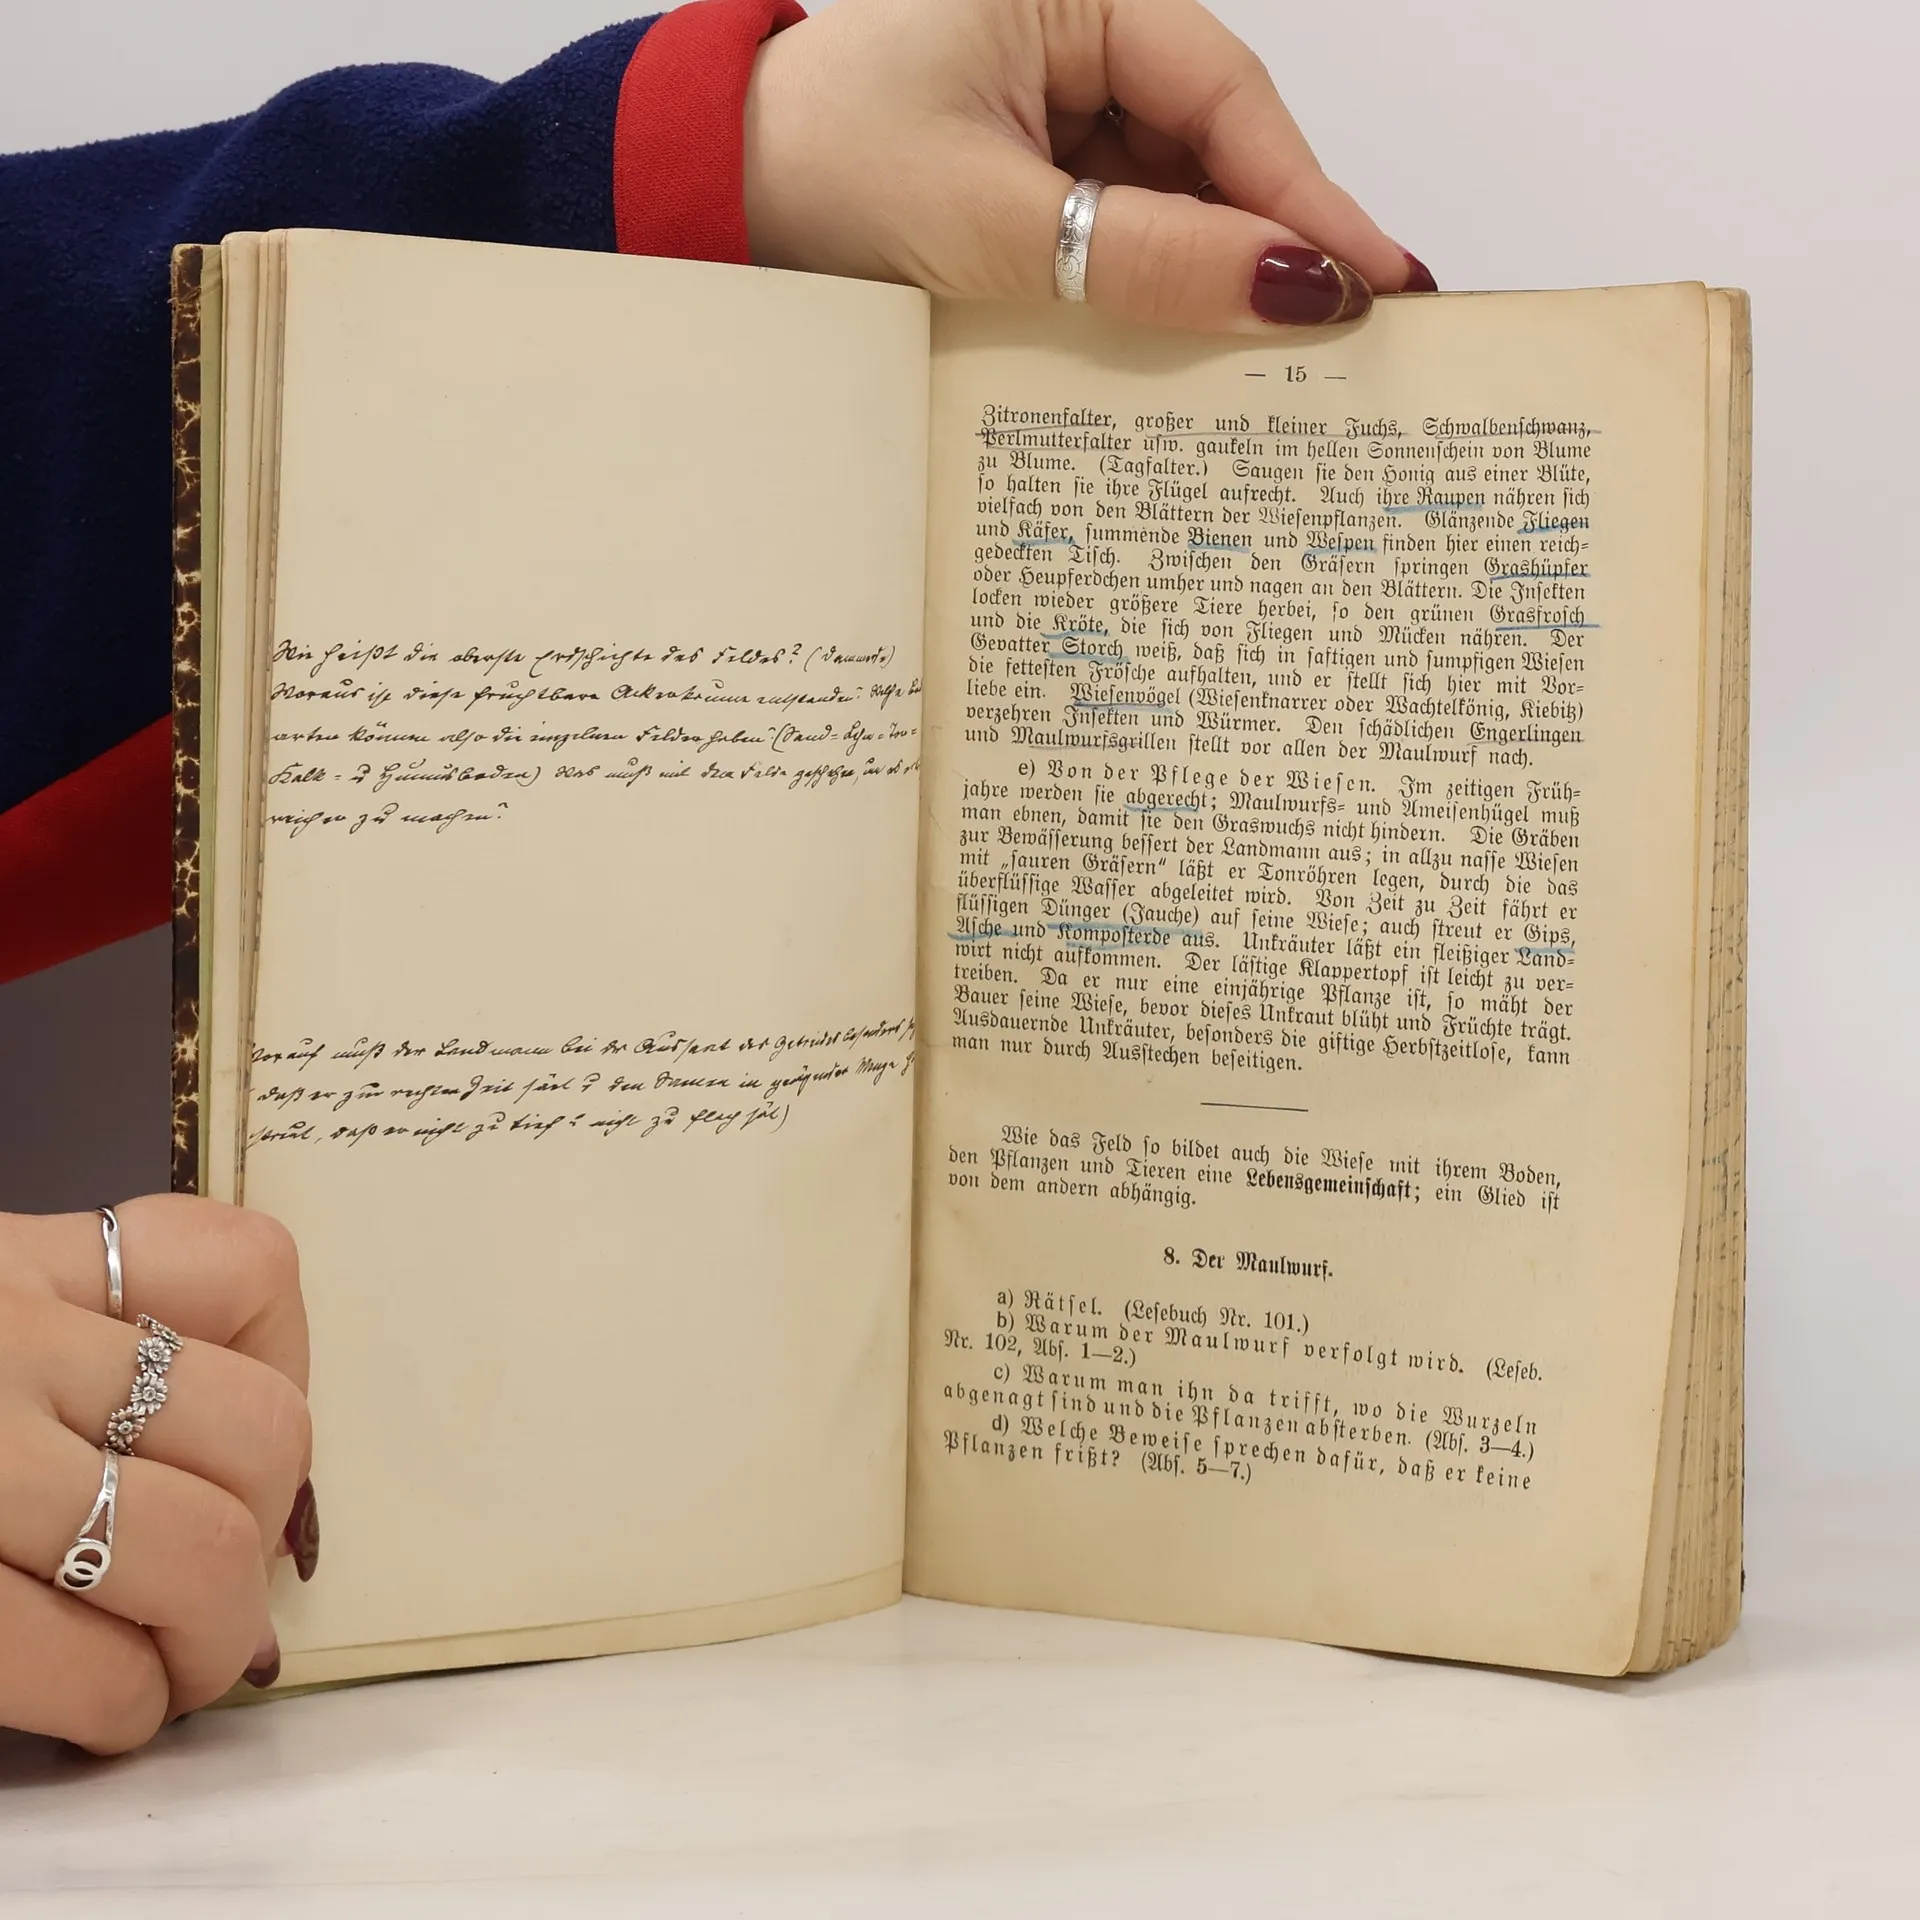 Wie heißt die oberste Erdschichte des Feldes? (Dammerde)
Woraus ist diese fruchtbare Ackerkrume entstanden? Welche
arten können also die einzelnen Felder haben? (Sand= Lehm= Ton=
Kalk= u Humusboden) Was muß mit dem Felde geschehen, um es
reicher zu machen?
Worauf muß der Landmann bei der Aussaat des Getreides besonders
daß er zur rechten Zeit säet u den Samen in genügender Menge
streut, daß er nicht zu tief u nicht zu flach sät)
— 15 —
Zitronenfalter, großer und kleiner Fuchs, Schwalbenschwanz,
Perlmutterfalter usw. gaukeln im hellen Sonnenschein von Blume
zu Blume. (Tagfalter.) Saugen sie den Honig aus einer Blüte,
so halten sie ihre Flügel aufrecht. Auch ihre Raupen nähren sich
vielfach von den Blättern der Wiesenpflanzen. Glänzende Fliegen
und Käfer, summende Bienen und Wespen finden hier einen reich=
gedeckten Tisch. Zwischen den Gräsern springen Grashüpfer
oder Heupferdchen umher und nagen an den Blättern. Die Insekten
locken wieder größere Tiere herbei, so den grünen Grasfrosch
und die Kröte, die sich von Fliegen und Mücken nähren. Der
Gevatter Storch weiß, daß sich in saftigen und sumpfigen Wiesen
die fettesten Frösche aufhalten, und er stellt sich hier mit Vor=
liebe ein. Wiesenvögel (Wiesenknarrer oder Wachtelkönig, Kiebitz)
verzehren Insekten und Würmer. Den schädlichen Engerlingen
und Maulwurfsgrillen stellt vor allen der Maulwurf nach.
e) Von der Pflege der Wiesen. Im zeitigen Früh=
jahre werden sie abgerecht; Maulwurfs= und Ameisenhügel muß
man ebnen, damit sie den Graswuchs nicht hindern. Die Gräben
zur Bewässerung bessert der Landmann aus; in allzu nasse Wiesen
mit „sauren Gräsern“ läßt er Tonröhren legen, durch die das
überflüssige Wasser abgeleitet wird. Von Zeit zu Zeit fährt er
flüssigen Dünger (Jauche) auf seine Wiese; auch streut er Gips,
Asche und Komposterde aus. Unkräuter läßt ein fleißiger Land=
wirt nicht aufkommen. Der lästige Klappertopf ist leicht zu ver=
treiben. Da er nur eine einjährige Pflanze ist, so mäht der
Bauer seine Wiese, bevor dieses Unkraut blüht und Früchte trägt.
Ausdauernde Unkräuter, besonders die giftige Herbstzeitlose, kann
man nur durch Ausstechen beseitigen.
Wie das Feld so bildet auch die Wiese mit ihrem Boden,
den Pflanzen und Tieren eine Lebensgemeinschaft; ein Glied ist
von dem andern abhängig.
8. Der Maulwurf.
a) Rätsel. (Lesebuch Nr. 101.)
b) Warum der Maulwurf verfolgt wird. (Leseb.
Nr. 102, Abs. 1—2.)
c) Warum man ihn da trifft, wo die Wurzeln
abgenagt sind und die Pflanzen absterben. (Abs. 3—4.)
d) Welche Beweise sprechen dafür, daß er keine
Pflanzen frißt? (Abs. 5—7.)